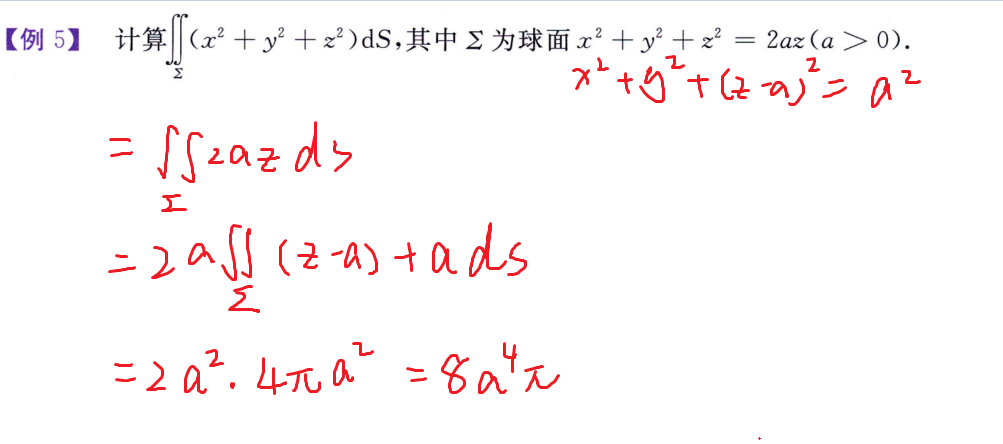 【例 5】 计算∬_Σ(x² + y² + z²)dS,其中 Σ 为球面 x² + y² + z² = 2az(a > 0).
x²+y²+(z-a)²= a²
= ∬_Σ 2az ds
= 2a∬_Σ (z-a)+a ds
= 2a²·4πa² = 8a⁴π